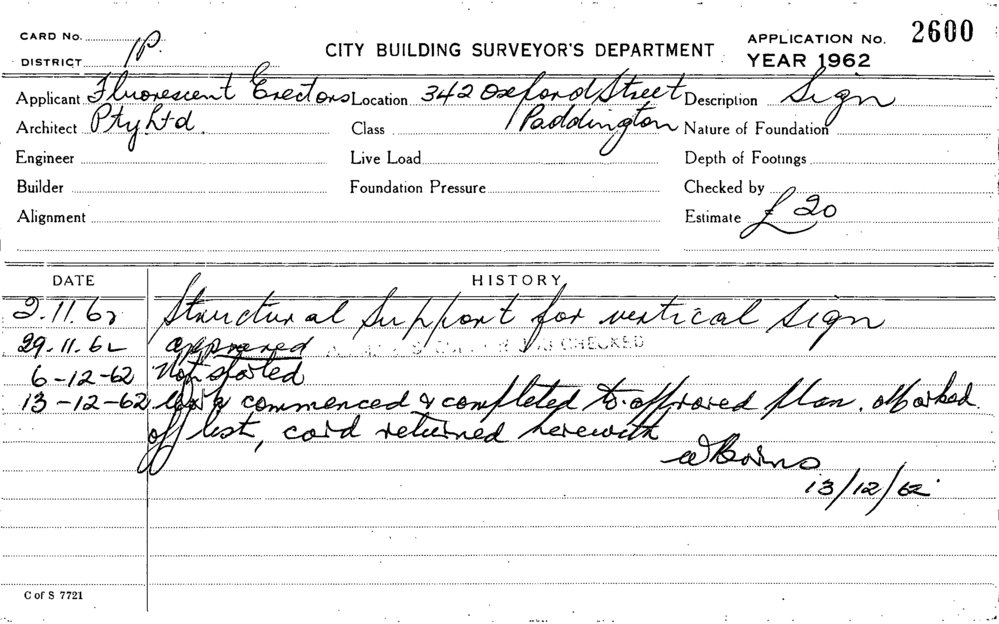 CARD No. CITY BUILDING SURVEYOR'S DEPARTMENT APPLICATION No. 2600
DISTRICT P. YEAR 1962
Applicant Fluorescent Erectors Location 342 Oxford Street Description Sign
Architect Pty Ltd. Class Paddington Nature of Foundation
Engineer Live Load Depth of Footings
Builder Foundation Pressure Checked by
Alignment Estimate £20
DATE HISTORY
2.11.62 Structural Support for vertical sign
29.11.62 approved CHECKED
6-12-62 Not started
13-12-62 Work commenced & completed to approved plan. Marked
off list, card returned herewith
13/12/62
C of S 7721